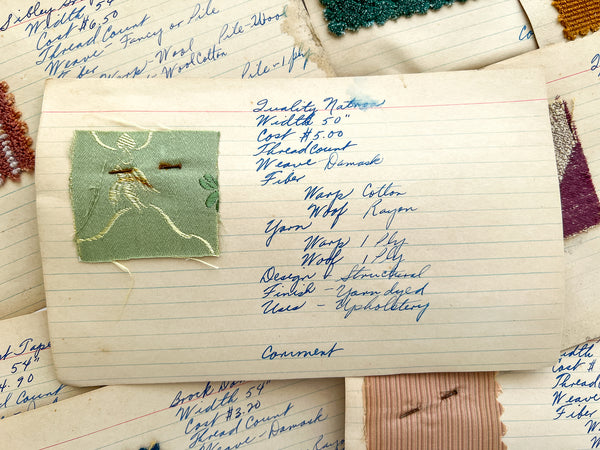 Sibley
Width 54"
Cost $6.50
Thread Count
Weave - Fancy or Pile
Fiber
Warp - Wool Pile - Wool
Wool Cotton
Pile - 1 ply
Quality
Width 50"
Cost $5.00
Thread Count
Weave Damask
Fiber
Warp Cotton
Woof Rayon
Yarn
Warp 1 Ply
Woof 1 Ply
Design - Structural
Finish - Yarn dyed
Uses - Upholstery
Comment
54"
4.90
Width 54"
Cost $3.20
Thread Count
Weave - Damask
Width 54"
Cost $
Thread
Weave
Fiber